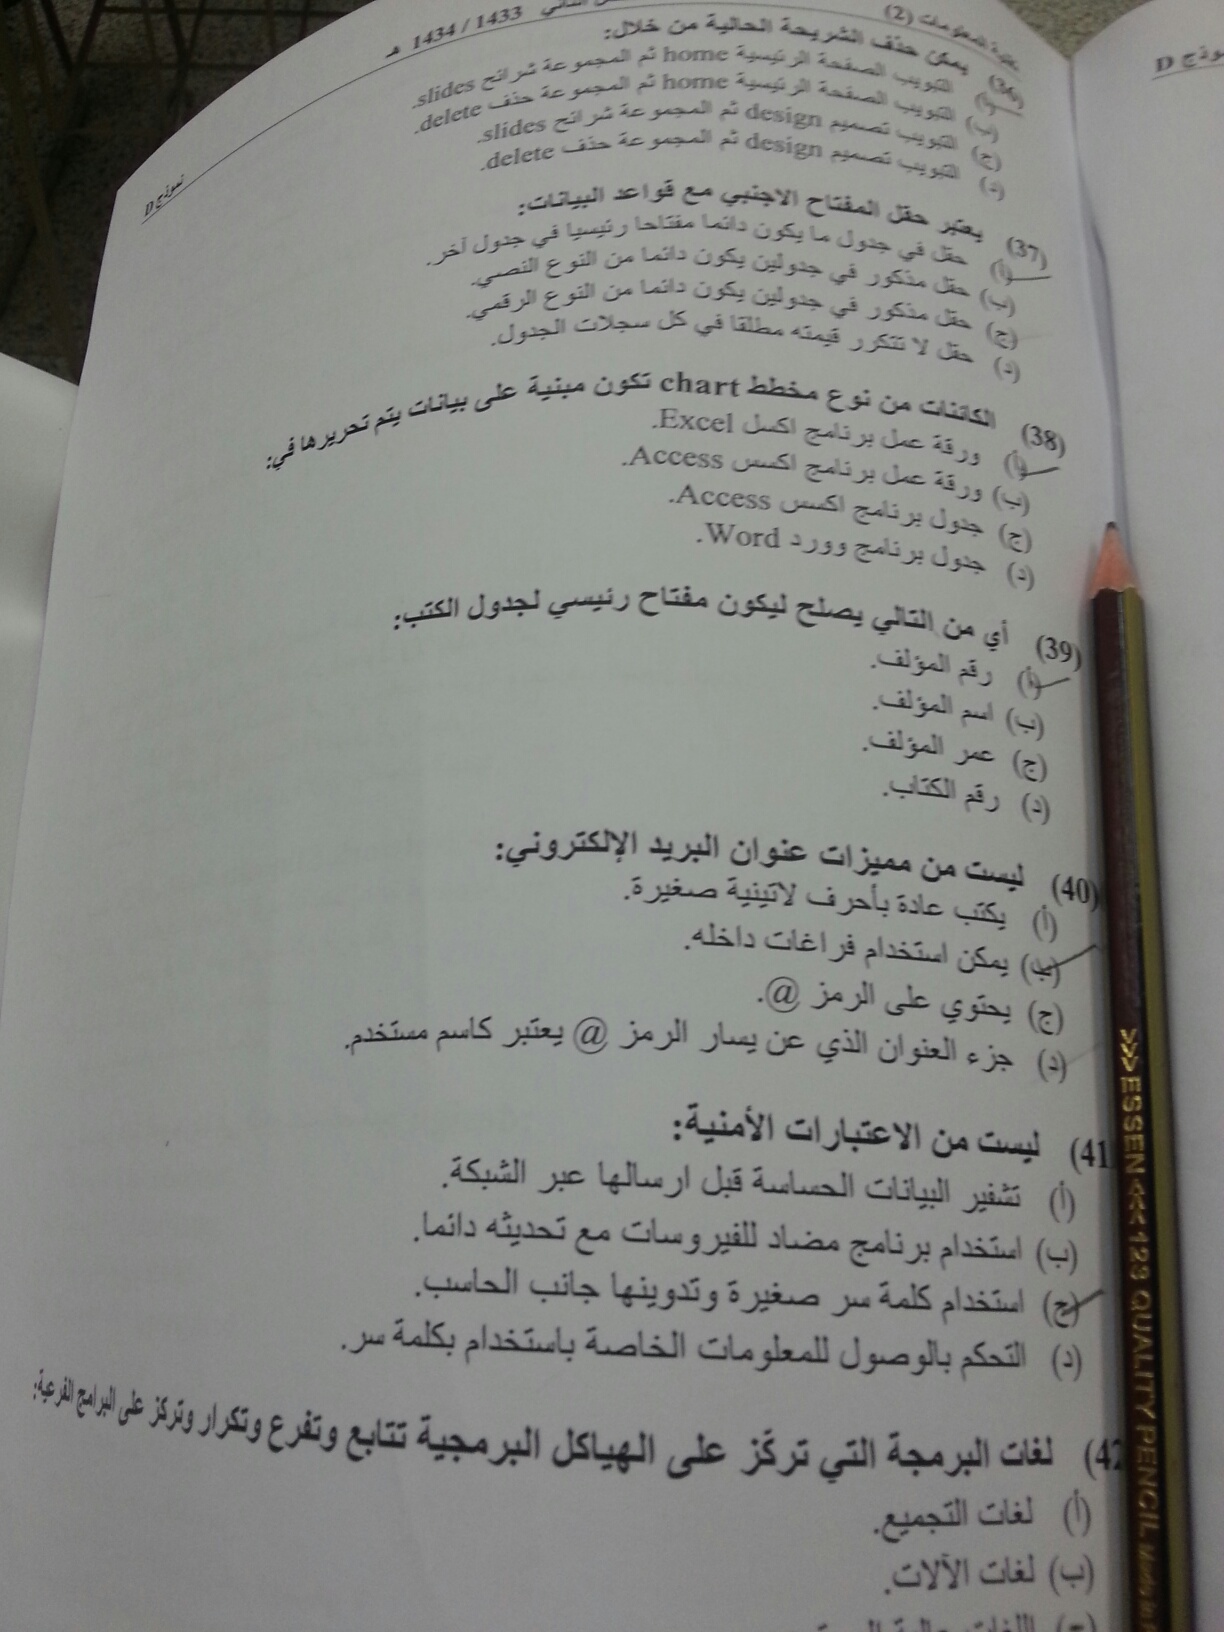 تقنية المعلومات (2)
الثاني 1433 / 1434 هـ
نموذج D
(36) يمكن حذف الشريحة الحالية من خلال:
(أ) التبويب الصفحة الرئيسية home ثم المجموعة شرائح slides.
(ب) التبويب الصفحة الرئيسية home ثم المجموعة حذف delete.
(ج) التبويب تصميم design ثم المجموعة شرائح slides.
(د) التبويب تصميم design ثم المجموعة حذف delete.
(37) يعتبر حقل المفتاح الاجنبي مع قواعد البيانات:
(أ) حقل في جدول ما يكون دائما مفتاحا رئيسيا في جدول آخر.
(ب) حقل مذكور في جدولين يكون دائما من النوع النصي.
(ج) حقل مذكور في جدولين يكون دائما من النوع الرقمي.
(د) حقل لا تتكرر قيمته مطلقا في كل سجلات الجدول.
(38) الكائنات من نوع مخطط chart تكون مبنية على بيانات يتم تحريرها في:
(أ) ورقة عمل برنامج اكسل Excel.
(ب) ورقة عمل برنامج اكسس Access.
(ج) جدول برنامج اكسس Access.
(د) جدول برنامج وورد Word.
(39) أي من التالي يصلح ليكون مفتاح رئيسي لجدول الكتب:
(أ) رقم المؤلف.
(ب) اسم المؤلف.
(ج) عمر المؤلف.
(د) رقم الكتاب.
(40) ليست من مميزات عنوان البريد الإلكتروني:
(أ) يكتب عادة بأحرف لاتينية صغيرة.
(ب) يمكن استخدام فراغات داخله.
(ج) يحتوي على الرمز @.
(د) جزء العنوان الذي عن يسار الرمز @ يعتبر كاسم مستخدم.
(41 ليست من الاعتبارات الأمنية:
(أ) تشفير البيانات الحساسة قبل ارسالها عبر الشبكة.
(ب) استخدام برنامج مضاد للفيروسات مع تحديثه دائما.
(ج) استخدام كلمة سر صغيرة وتدوينها جانب الحاسب.
(د) التحكم بالوصول للمعلومات الخاصة باستخدام بكلمة سر.
(42 لغات البرمجة التي تركّز على الهياكل البرمجية تتابع وتفرع وتكرار وتركز على البرامج الفرعية:
(أ) لغات التجميع.
(ب) لغات الآلات.
>>> ESSEN <<< 123 QUALITY PENCIL
نموذج D